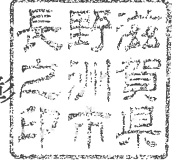 滋賀県
野洲市
長之印